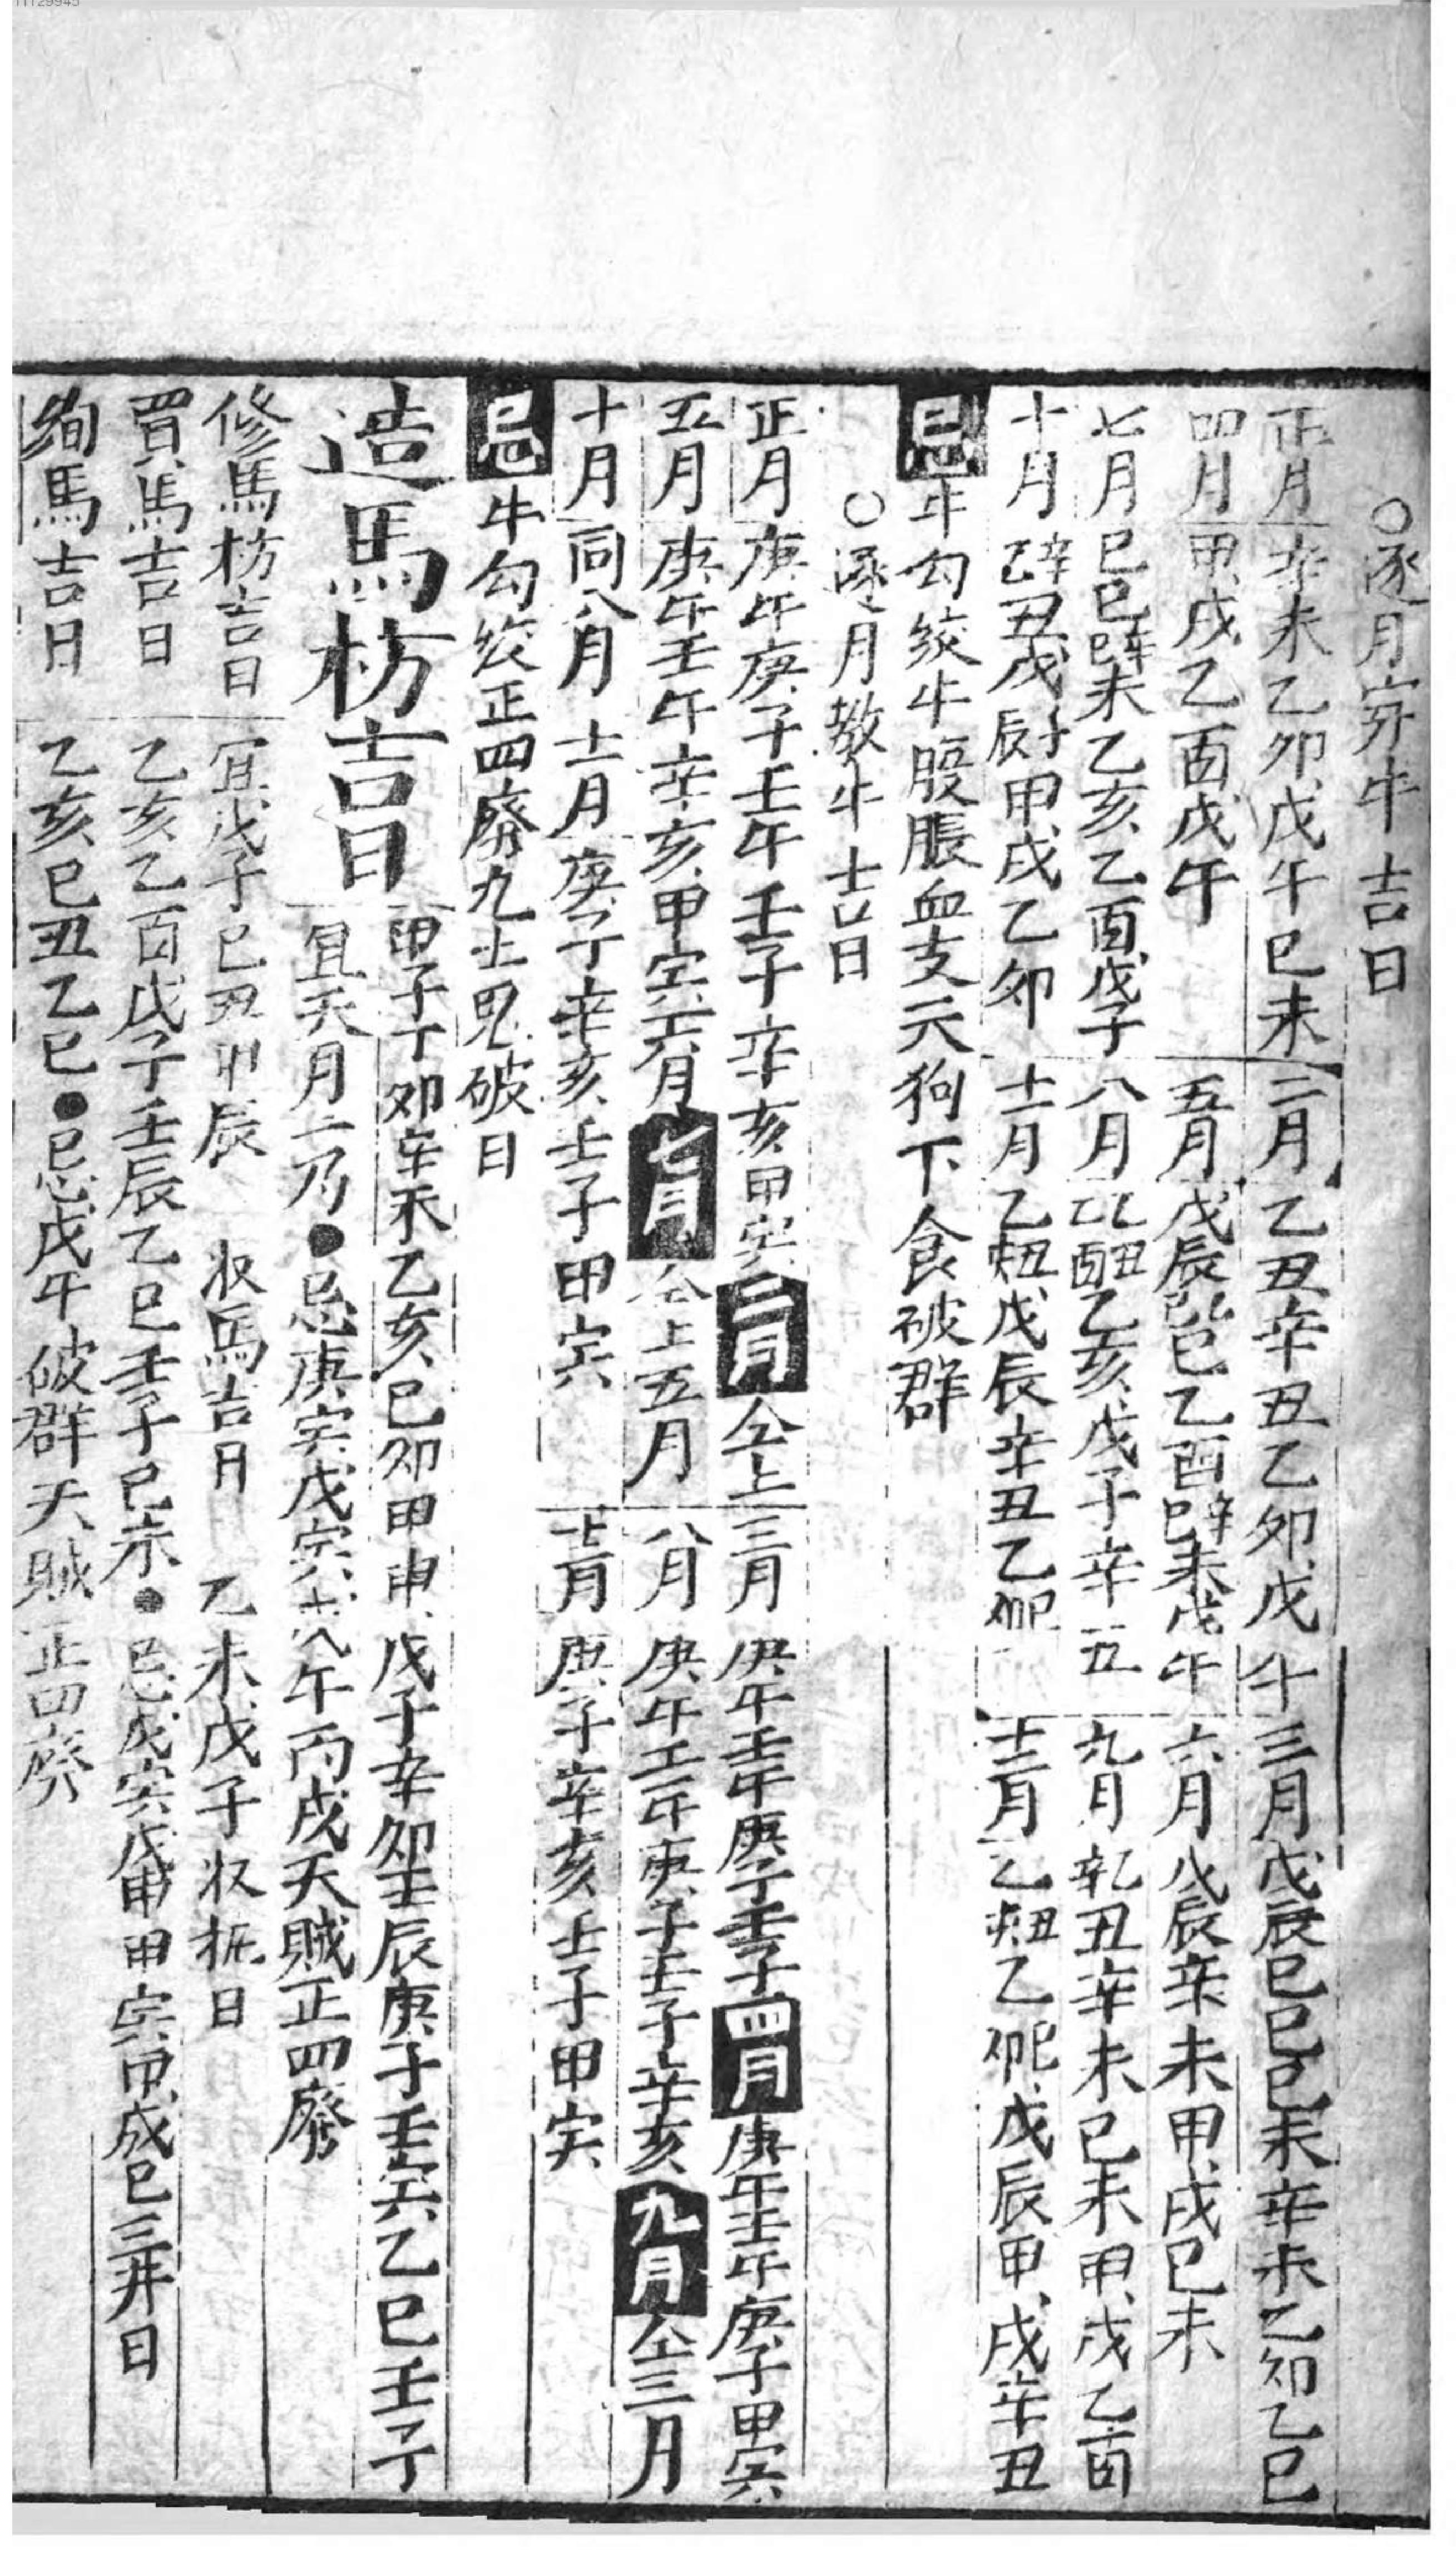 11129945
○逐月穿牛吉日
正月 辛未乙卯戊午巳未 二月 乙丑辛丑乙卯戊午 三月 戊辰巳巳巳未辛未乙卯乙巳
四月 甲戌乙酉戊午 五月 戊辰 乙酉 未戊午 六月 戊辰辛未甲戌巳未
七月 巳巳 未乙亥乙酉戊子 八月 乙亥戊子辛丑 九月 丑辛未巳未甲戌乙酉
十月 丑戊辰 甲戌乙卯 十一月 乙丑 戊辰辛丑乙 十二月 乙丑 乙 戊辰甲戌辛丑
忌 牛勾絞牛腹脹血支天狗下食破群
○逐月教牛吉日
正月 庚午庚子壬午壬子辛亥甲寅 二月 仝上 三月 庚午壬午庚子壬子 四月 庚午壬午庚子甲寅
五月 庚午壬午辛亥甲寅六月 七月 仝上五月 八月 庚午壬午庚子壬子辛亥 九月 仝三月
十月 同八月 十一月 庚子辛亥壬子甲寅 十二月 庚子辛亥壬子甲寅
忌 牛勾絞正四廢九土鬼破日
造馬枋吉日 甲子丁卯辛未乙亥巳卯甲申戊子辛卯壬辰庚子壬寅乙巳壬子
宜天月二 ●忌庚寅戊寅 午丙戌天賊正四廢
修馬枋吉日 宜戊子巳丑甲辰 收馬吉日 乙未戊子收 日
買馬吉日 乙亥乙酉戊子壬辰乙巳壬子巳未●忌戊寅戊申甲寅甲戌巳 日
絢馬吉日 乙亥巳丑乙巳●忌戊午破群天賊正四廢